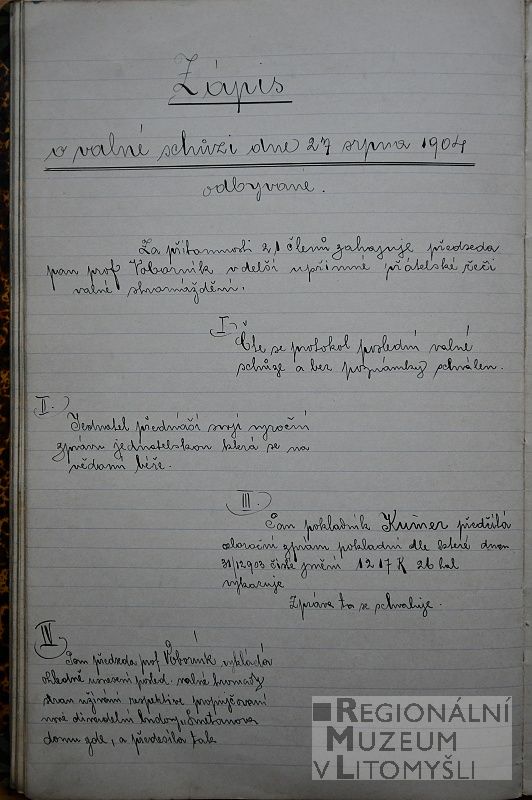 Zápis
o valné schůzi dne 27 srpna 1904
odbyvané.
Za přítomnosti 21 členů zahajuje předseda
pan prof Voborník v delší upřímné přátelské řeči
valné shromáždění.
I.
Čte se protokol poslední valné
schůze a bez poznámky schválen.
II.
Jednatel přednáší svoji výroční
zprávu jednatelskou která se na
vědomí béře.
III.
Pan pokladník Kumer předčítá
celoroční zprávu pokladní dle které dnem
31/12 903 čisté jmění 1217 K 26 hal
vykazuje
Zpráva ta se schvaluje.
IV
Pan předseda prof Voborník vykládá
ohledně usnesení posled. valné hromady
stran užívání respektive propůjčování
nové divadelní budovy Smetanova
domu zde, a předesílá tak
REGIONÁLNÍ
MUZEUM
V LITOMYŠLI